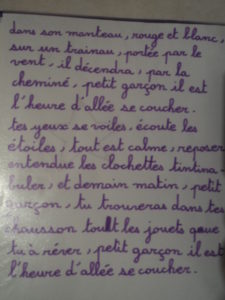 dans son manteau, rouge et blanc,
sur un trainau, portée par le
vent, il décendra, par la
cheminé, petit garçon il est
l'heure d'allée se coucher.
tes yeux se voiles, écoute les
étoiles, tout est calme, reposer
entendue les clochettes tintina-
buler, et demain matin, petit
garçon, tu trouveras dans tes
chausson toult les jouets que
tu à réver, petit garçon il est
l'heure d'allée se coucher.